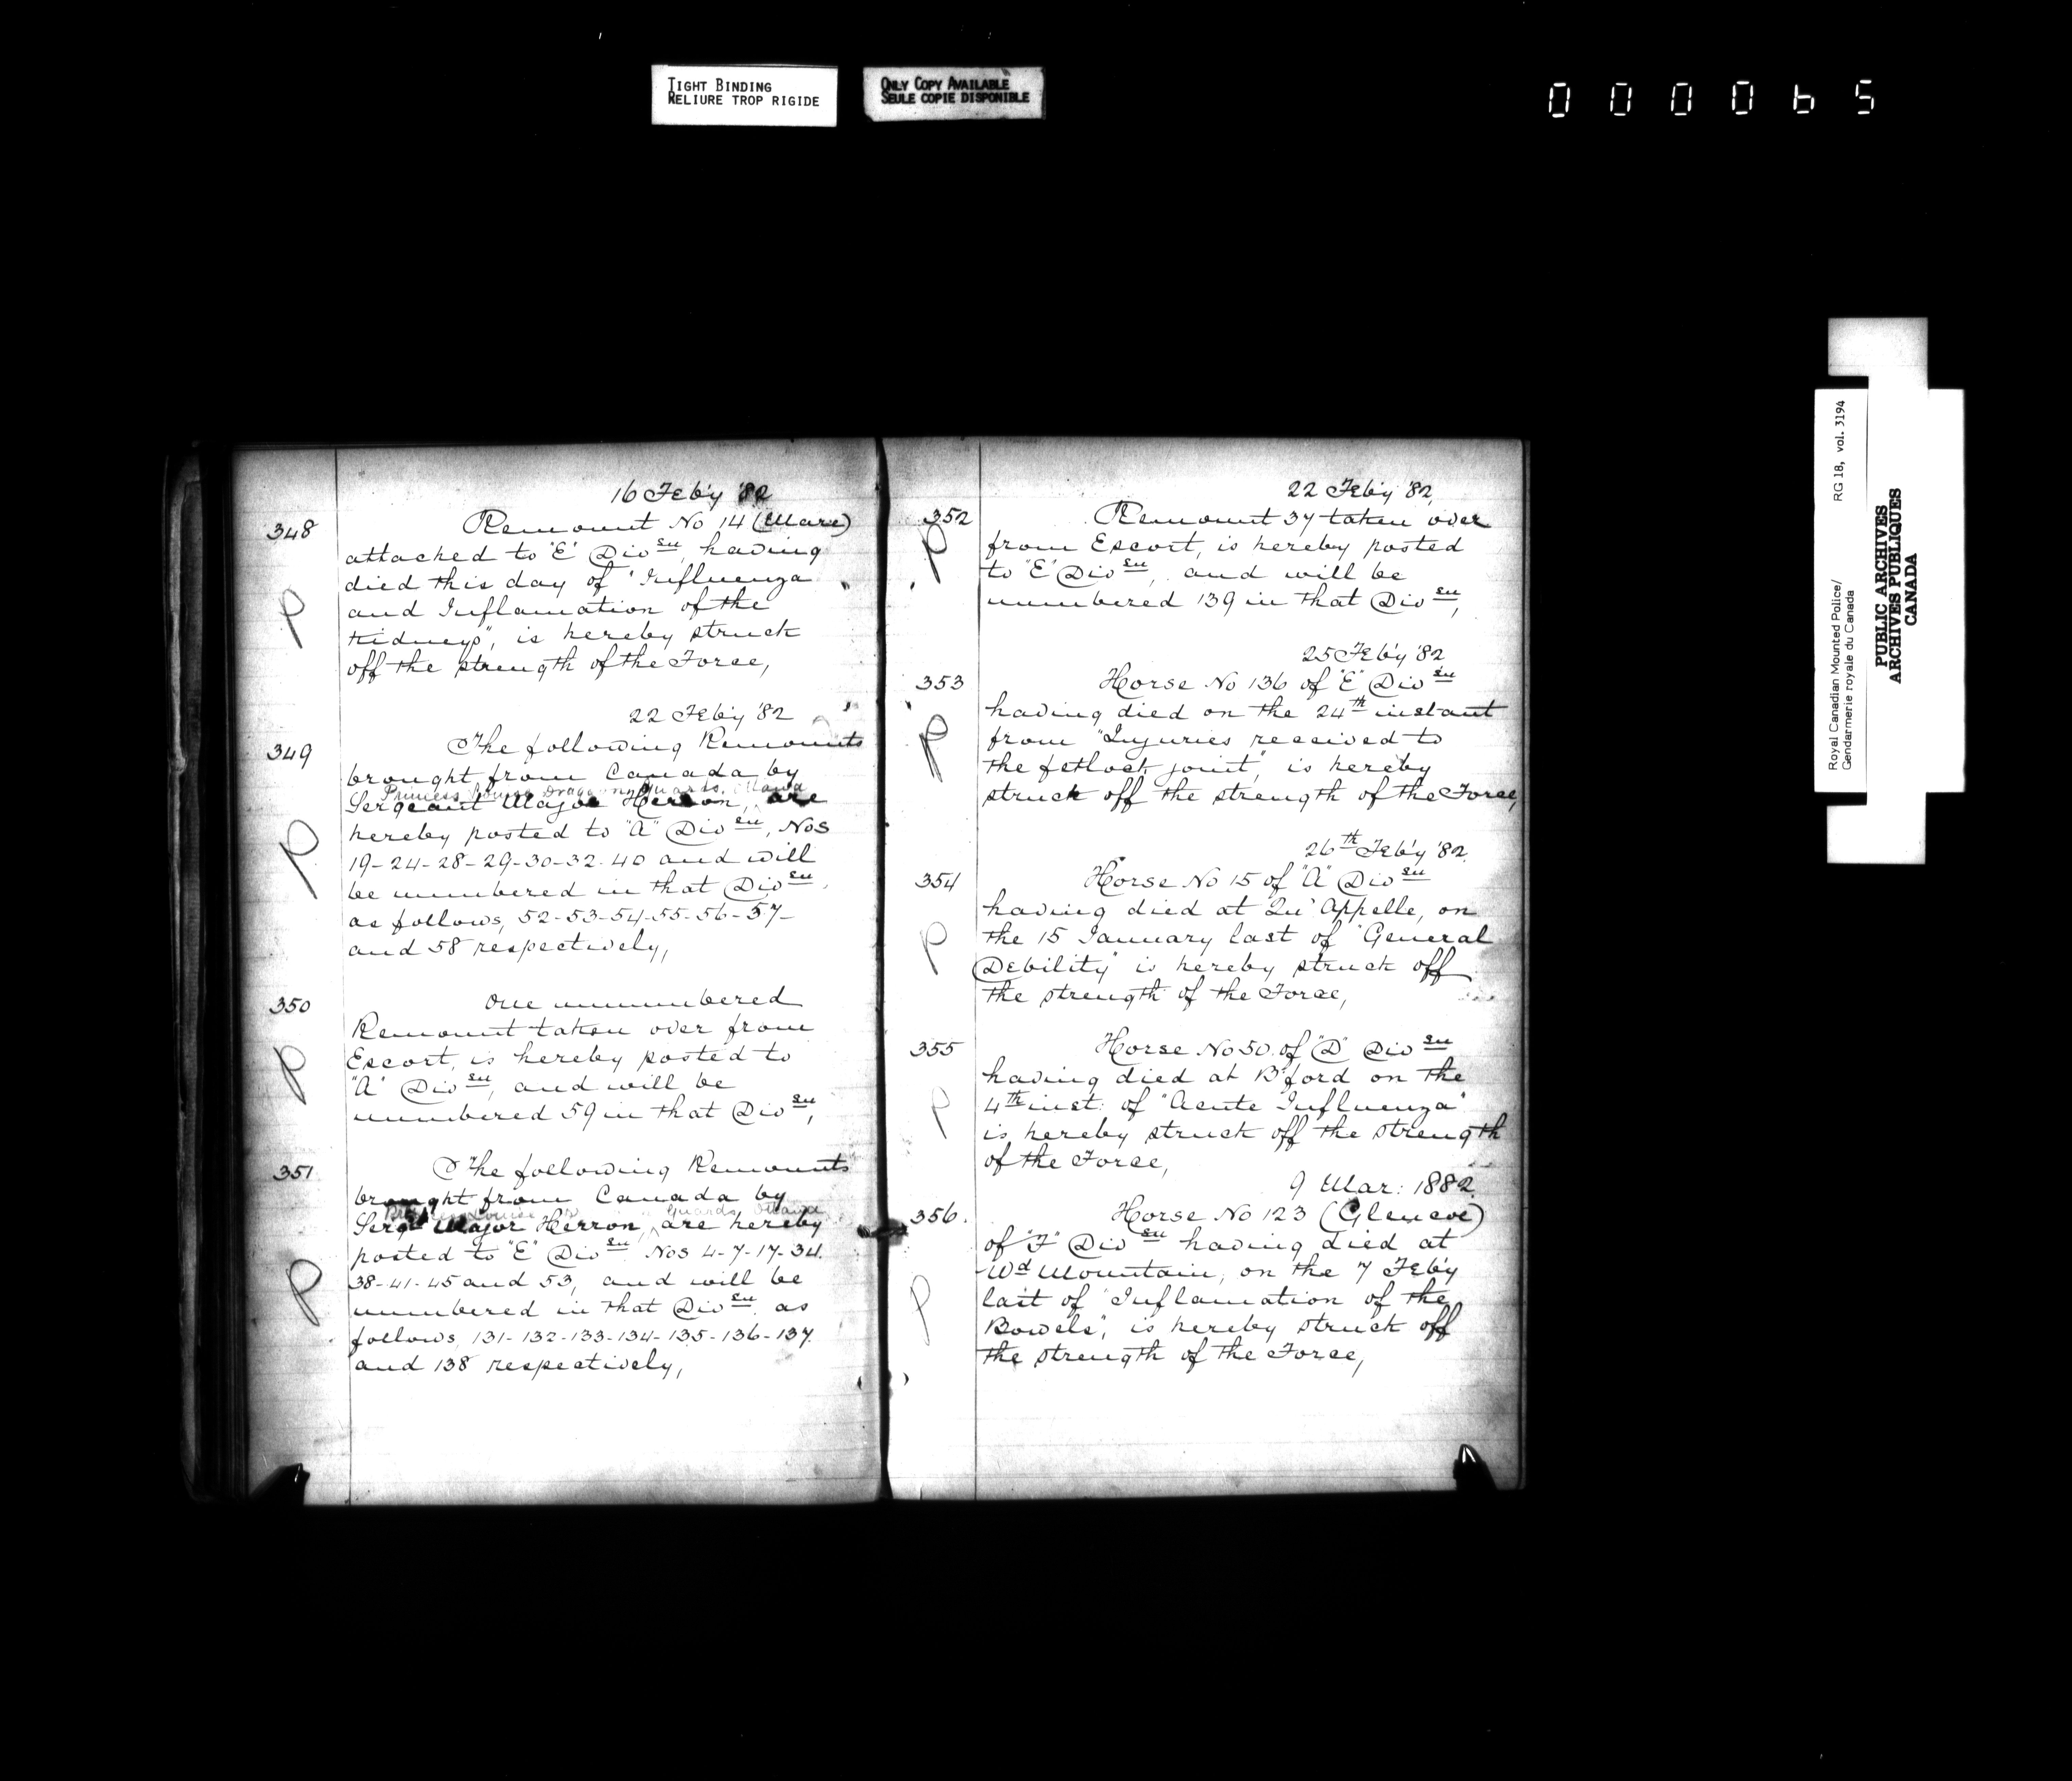 TIGHT BINDING
RELIURE TROP RIGIDE
ONLY COPY AVAILABLE
SEULE COPIE DISPONIBLE
000065
16 Feb'y '82
348
Remount No 14 (Mare)
attached to "E" Divsn, having
died this day of "Influenza
and Inflamation of the
Kidneys", is hereby struck
off the strength of the Force,
P
22 Feb'y '82
349
The following Remounts
brought from Canada by
Princess Louise Dragoon Guards. Ottawa
Sergeant Major Herron, are
hereby posted to "A" Divsn, Nos
19-24-28-29-30-32-40 and will
be numbered in that Divsn,
as follows, 52-53-54-55-56-57-
and 58 respectively,
P
350
One unnumbered
Remount taken over from
Escort, is hereby posted to
"A" Divsn, and will be
numbered 59 in that Divsn,
P
351
The following Remounts
brought from Canada by
Louise Guards Ottawa
Sergt Major Herron, are hereby
posted to "E" Divsn Nos 4-7-17-34.
38-41-45 and 53, and will be
numbered in that Divsn as
follows, 131-132-133-134-135-136-137.
and 138 respectively,
P
22 Feb'y '82,
352
Remount 37 taken over
from Escort, is hereby posted
to "E" Divsn, and will be
numbered 139 in that Divsn,
P
25 Feb'y '82
353
Horse No 136 of "E" Divsn
having died on the 24th instant
from "Injuries received to
the fetlock joint", is hereby
struck off the strength of the Force,
P
26th Feb'y '82.
354
Horse No 15 of "A" Divsn
having died at Qu'Appelle, on
the 15 January last of "General
Debility" is hereby struck off
the strength of the Force,
P
355
Horse No 50 of "D" Divsn
having died at B'ford on the
4th inst: of "Acute Influenza"
is hereby struck off the strength
of the Force,
P
9 Mar: 1882.
356.
Horse No 123 (Glencoe)
of "F" Divsn having died at
Wd Mountain, on the 7 Feb'y
last of "Inflamation of the
Bowels", is hereby struck off
the strength of the Force,
P
Royal Canadian Mounted Police/
Gendarmerie royale du Canada
RG 18, vol. 3194
PUBLIC ARCHIVES
ARCHIVES PUBLIQUES
CANADA